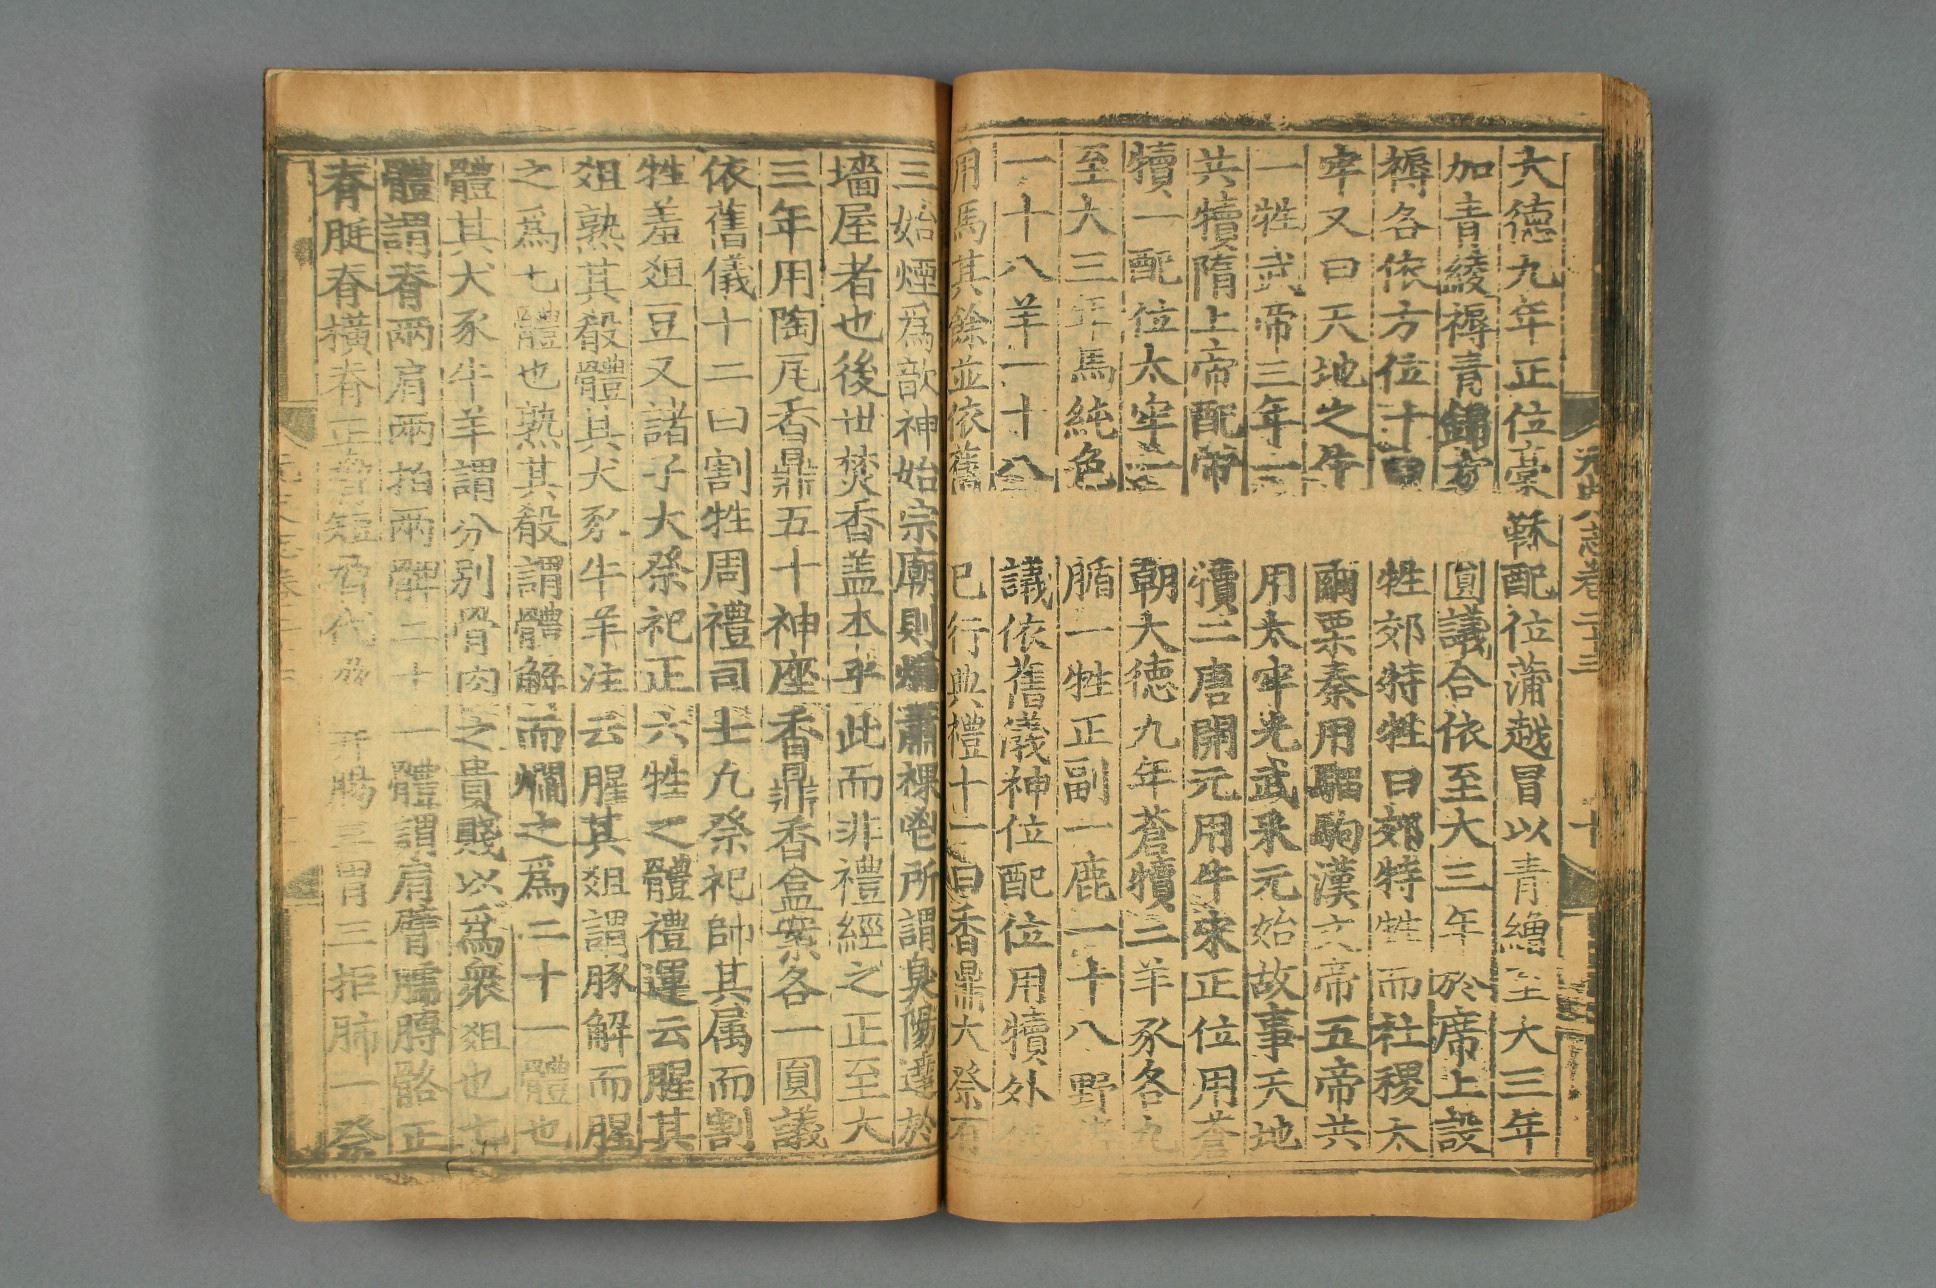 元史八志卷二十三　十
大德九年正位藁秸配位蒲越冒以青繒至大三年
加青綾褥青錦方圓議合依至大三年於席上設
褥各依方位十曰牲郊特牲曰郊特牲而社稷太
牢又曰天地之牛角繭栗秦用駵駒漢文帝五帝共
一牲武帝三年一用太牢光武采元始故事天地
共犢隋上帝配帝犢二唐開元用牛宋正位用蒼
犢一配位太牢一朝大德九年蒼犢二羊豕各九
至大三年馬純色腯一牲正副一鹿一十八野
一十八羊一十八議依舊儀神位配位用犢外
用馬其餘並依舊已行典禮十一曰香鼎大祭有
三始煙爲歆神始宗廟則焫蕭祼鬯所謂臭陽達於
墻屋者也後世焚香盖本乎此而非禮經之正至大
三年用陶瓦香鼎五十神座香鼎香盒案各一圓議
依舊儀十二曰割牲周禮司士凡祭祀帥其属而割
牲羞俎豆又諸子大祭祀正六牲之體禮運云腥其
俎熟其殽體其犬豕牛羊注云腥其俎謂豚解而腥
之爲七體也熟其殽謂體解而爓之爲二十一體也
體其犬豕牛羊謂分别骨肉之貴賤以爲衆俎也七
體謂脊兩肩兩拍兩髀二十一體謂肩臂臑膊骼正
脊脡脊橫脊正脅短脅代脅 腸三胃三拒肺一祭